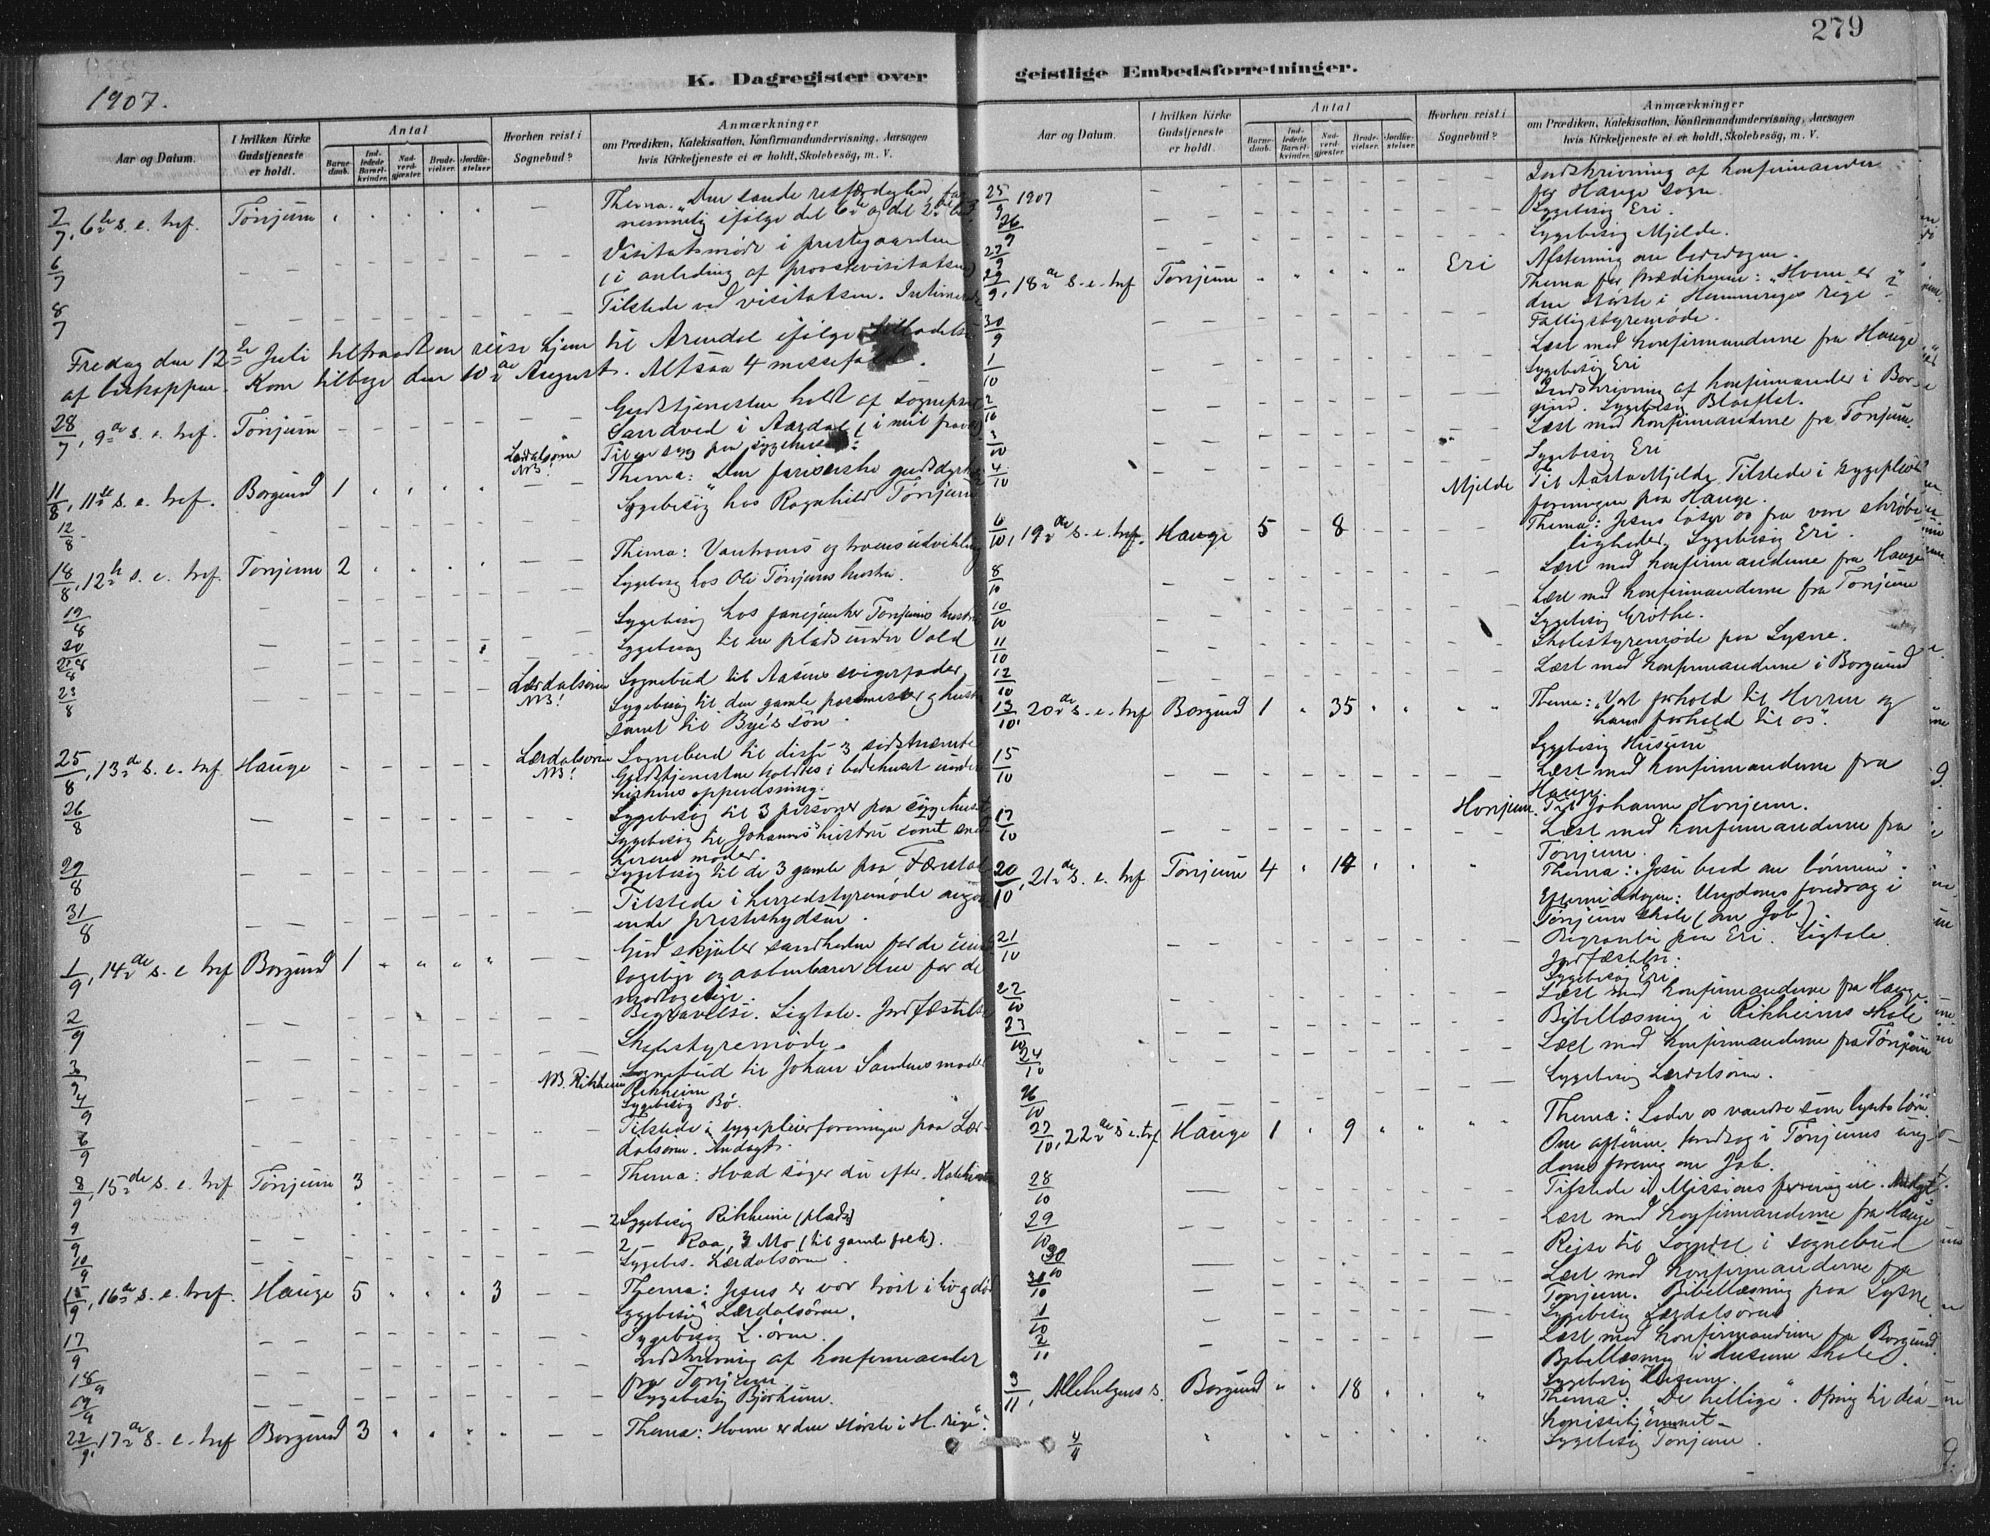 279
K. Dagregister over geistlige Embedsforretninger.
1907.
Aar og Datum.
I hvilken Kirke Gudstjeneste er holdt.
Antal
Barnedaab.
Indledede Barselkvinder.
Nadverdgjæster.
Brudevielser.
Jordfæstelser.
Hvorhen reist i Sognebud?
Anmærkninger
om Prædiken, Katekisation, Konfirmandundervisning, Aarsagen
hvis Kirketjeneste ei er holdt, Skolebesøg, m. V.
7/7, 6te s. e. tref. Tønjum Thema: "Den sande retfærdighed,
nemmelig ifølge det 6te og det 2det
6/7 Visitatsmøde i prestegaarden
(i anledning af provstevisitatsen)
8/7 Tilstede ved visitatsen.
Fredag den 12te Juli tiltraadt en reise hjem til Arendal ifølge tilladelse
af biskoppen. Kom tilbage den 10de August. Altsaa 4 messefald.
28/7, 9de s. e. tref. Tønjum Gudstjenesten holdt af sogneprest
Sandved i Aardal (i mit fravær)
Lærdalsøren NB! Til en syg paa sygehuset
11/8, 11te s. e. tref. Borgund 1 Thema: Den farisæiske gudsdyrkelse
12/8 Sygebesøg hos Ragnhild Tønjum
18/8, 12te s. e. tref. Tønjum 2 Thema: Vantroens og troens udvikling
19/8 Sygebesøg hos Ole Tønjums hustru.
20/8 Sygebesøg hos fanejunker Tønjums hustru
Sygebesøg til en plads under Vold
Lærdalsøren NB! Sognebud til Aasens svigerfader
23/8 Sygebesøg til den gamle postmester og hustru
samt til Bye's søn.
25/8, 13de s. e. tref Hauge Lærdalsøren NB! Sognebud til disse 3 sidstnævnte
Gudstjenesten holdtes i bedehuset under
kirkens oppudsning.
26/8 Sygebesøg til 3 personer paa sygehuset
Sygebesøg til Johannes' hustru samt
moder.
29/8 Sygebesøg til de 3 gamle paa
31/8 Tilstede i herredstyremøde angaaende
presteskydsen.
1/9, 14de s. e. tref Borgund 1 Gud skjuler sandheden for de
og aabenbarer den for de
modtagelige.
2/9 Begravelse. Ligtale. Jordfæstelse
3/9 Skolestyremøde.
NB. Rikheim Sognebud til Johan Sandnes moder
Rikheim
4/9 Sygebesøg Bø.
6/9 Tilstede i sygepleierforeningen paa Lærdalsøren.
Andagt.
8/9, 15de s. e. tref Tønjum 3 Thema: Hvad søger du efter.
9/9 2 Sygebesøg Rikheim (plads)
2 — Raa, 3 Mo (til gamle folk).
10/9 Sygebes. Lærdalsøren.
15/9, 16de s. e. tref. Hauge 5 3 Thema: Jesus er vor trøst i liv og død
Sygebesøg Lærdalsøren.
17/9 Sygebesøg L.øren.
18/9 Indskrivning af konfirmander
fra Tønjum.
19/9 Sygebesøg Bjørkum.
22/9, 17de s. e. tref Borgund 3 Thema: Hvem er den største i H. rige".
Aar og Datum.
I hvilken Kirke Gudstjeneste er holdt.
Antal
Barnedaab.
Indledede Barselkvinder.
Nadverdgjæster.
Brudevielser.
Jordfæstelser.
Hvorhen reist i Sognebud?
Anmærkninger
om Prædiken, Katekisation, Konfirmandundervisning, Aarsagen
hvis Kirketjeneste ei er holdt, Skolebesøg, m. V.
25/9 1907 Indskrivning af konfirmander
for Hauge sogn.
Sygebesøg Eri.
26/9 Sygebesøg Mjelde.
27/9 Afstemning om bededagen.
29/9, 18de s. e. tref Tønjum Eri Thema for Prædikenen: "Hvem er
den største i Himmeriges rige"?
30/9 Fattigstyremøde.
Læst med konfirmanderne fra Hauge
1/10 Sygebesøg Eri
2/10 Indskrivning af konfirmander i Borgund.
Sygebesøg Blaaflat.
3/10 Læst med konfirmanderne fra Tønjum.
Sygebesøg Eri
4/10 Mjelde Til Aasta Mjelde. Tilstede i sygepleieforeningen
paa Hauge.
6/10, 19de s. e. tref. Hauge 5 8 Thema: Jesus løser os fra vore skrøbeligheder.
Sygebesøg Eri.
8/10 Læst med konfirmanderne fra Hauge
10/10 Læst med konfirmanderne fra Tønjum
Sygebesøg Grøthe.
11/10 Skolestyremøde paa Lysne.
12/10 Læst med konfirmanderne i Borgund
13/10, 20de s. e. tref Borgund 1 35 Thema: "Vort forhold til Herren og
hans forhold til os".
Sygebesøg Husum
15/10 Læst med konfirmanderne fra
Hauge.
17/10 Honjum. Til Johanne Honjum.
Læst med konfirmanderne fra
Tønjum.
20/10, 21de s. e. tref Tønjum 4 14 Thema: "Jesu bud om bønnen".
Eftermiddagen: Ungdoms foredrag i
Tønjum skole (om Job).
21/10 Begravelse paa Eri. Ligtale.
Jordfæstelse.
Sygebesøg Eri.
22/10 Læst med konfirmanderne fra Hauge.
23/10 Bibellæsning i Rikheims skole
24/10 Læst med konfirmanderne fra Tønjum
Sygebesøg Lærdalsøren.
26/10
27/10, 22de s. e. tref Hauge 1 9 Thema: Lader os vandre som lysets børn
Om aftenen foredrag i Tønjums ungdomsforening
om Job.
28/10 Tilstede i Missionsforeningen. Andagt.
29/10 Læst med konfirmanderne fra Hauge
30/10 Reise til i sognebud
31/10 Læst med konfirmanderne fra
Tønjum. Bibellæsning paa Lysne.
1/10 Sygebesøg Lærdalsøren
2/11 Læst med konfirmanderne fra Borgund.
Bibellæsning i Husum skole.
Sygebesøg Husum.
3/11, Allehelgens s. Borgund 18 Thema: "De hellige". Ofring til diakonissehjemmet
4/11 Sygebesøg Tønjum.